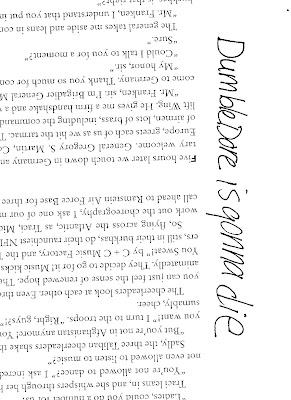 "Ladies, could you do a number for us?"
Traci leans in, and she whispers through her
"You're not allowed to dance?" I ask incred
not even allowed to listen to music?"
Sadly, the three Taliban cheerleaders shake the
"But you're not in Afghanistan anymore! You
you want!" I turn to the troops. "Right, guys?!"
sumably, cheer.
The cheerleaders look at each other. Even thro
you can just feel the sense of renewed hope. The
animatedly. They decide to go for it! Music kicks
You Sweat!" by C + C Music Factory, and the T
ers, still in their burkhas, do their raunchiest NFL
So, flying across the Atlantic, as Traci, Mic
work out the choreography, I ask one of our m
call ahead to Ramstein Air Force Base for three
Five hours later we touch down in Germany an
tary welcome. General Gregory S. Martin, Co
Europe, greets each of us as we hit the tarmac. T
of airmen, lots of brass, including the command
lift Wing. He gives me a firm handshake and a w
"Mr. Franken, sir! I'm Brigadier General M
come to Germany. Thank you so much for com
"My honor, sir."
"Could I talk to you for a moment?"
"Sure."
The general takes me aside and leans in con
"Mr. Franken, I understand that you put in
DUMBLEDORE is gonna die